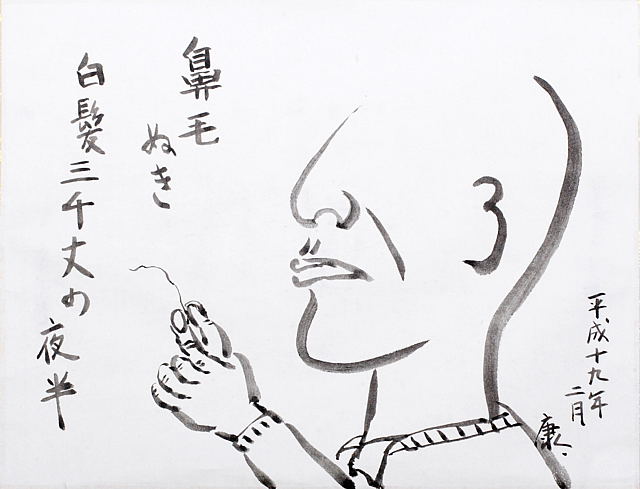 鼻毛
ぬき
白髪三千丈の
夜半
平成十九年
二月
康